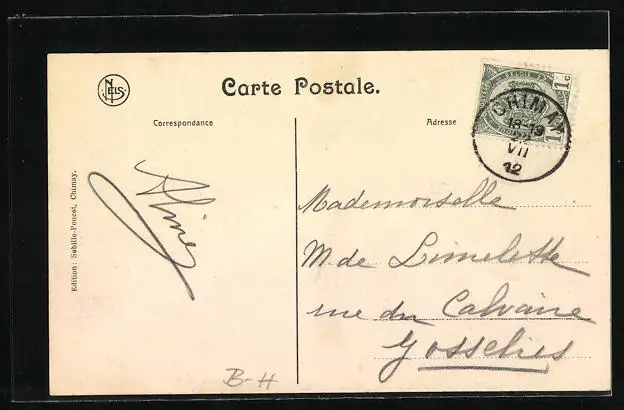 NELS
Carte Postale.
Correspondance
Adresse
BELGIQUE
1c 1c
CHIMAY
18-19
22
VII
12
Edition: Sebille-Poucet, Chimay.
Aline
Mademoiselle
M. de Limelette
rue du Calvaire
Gosselies
B-H